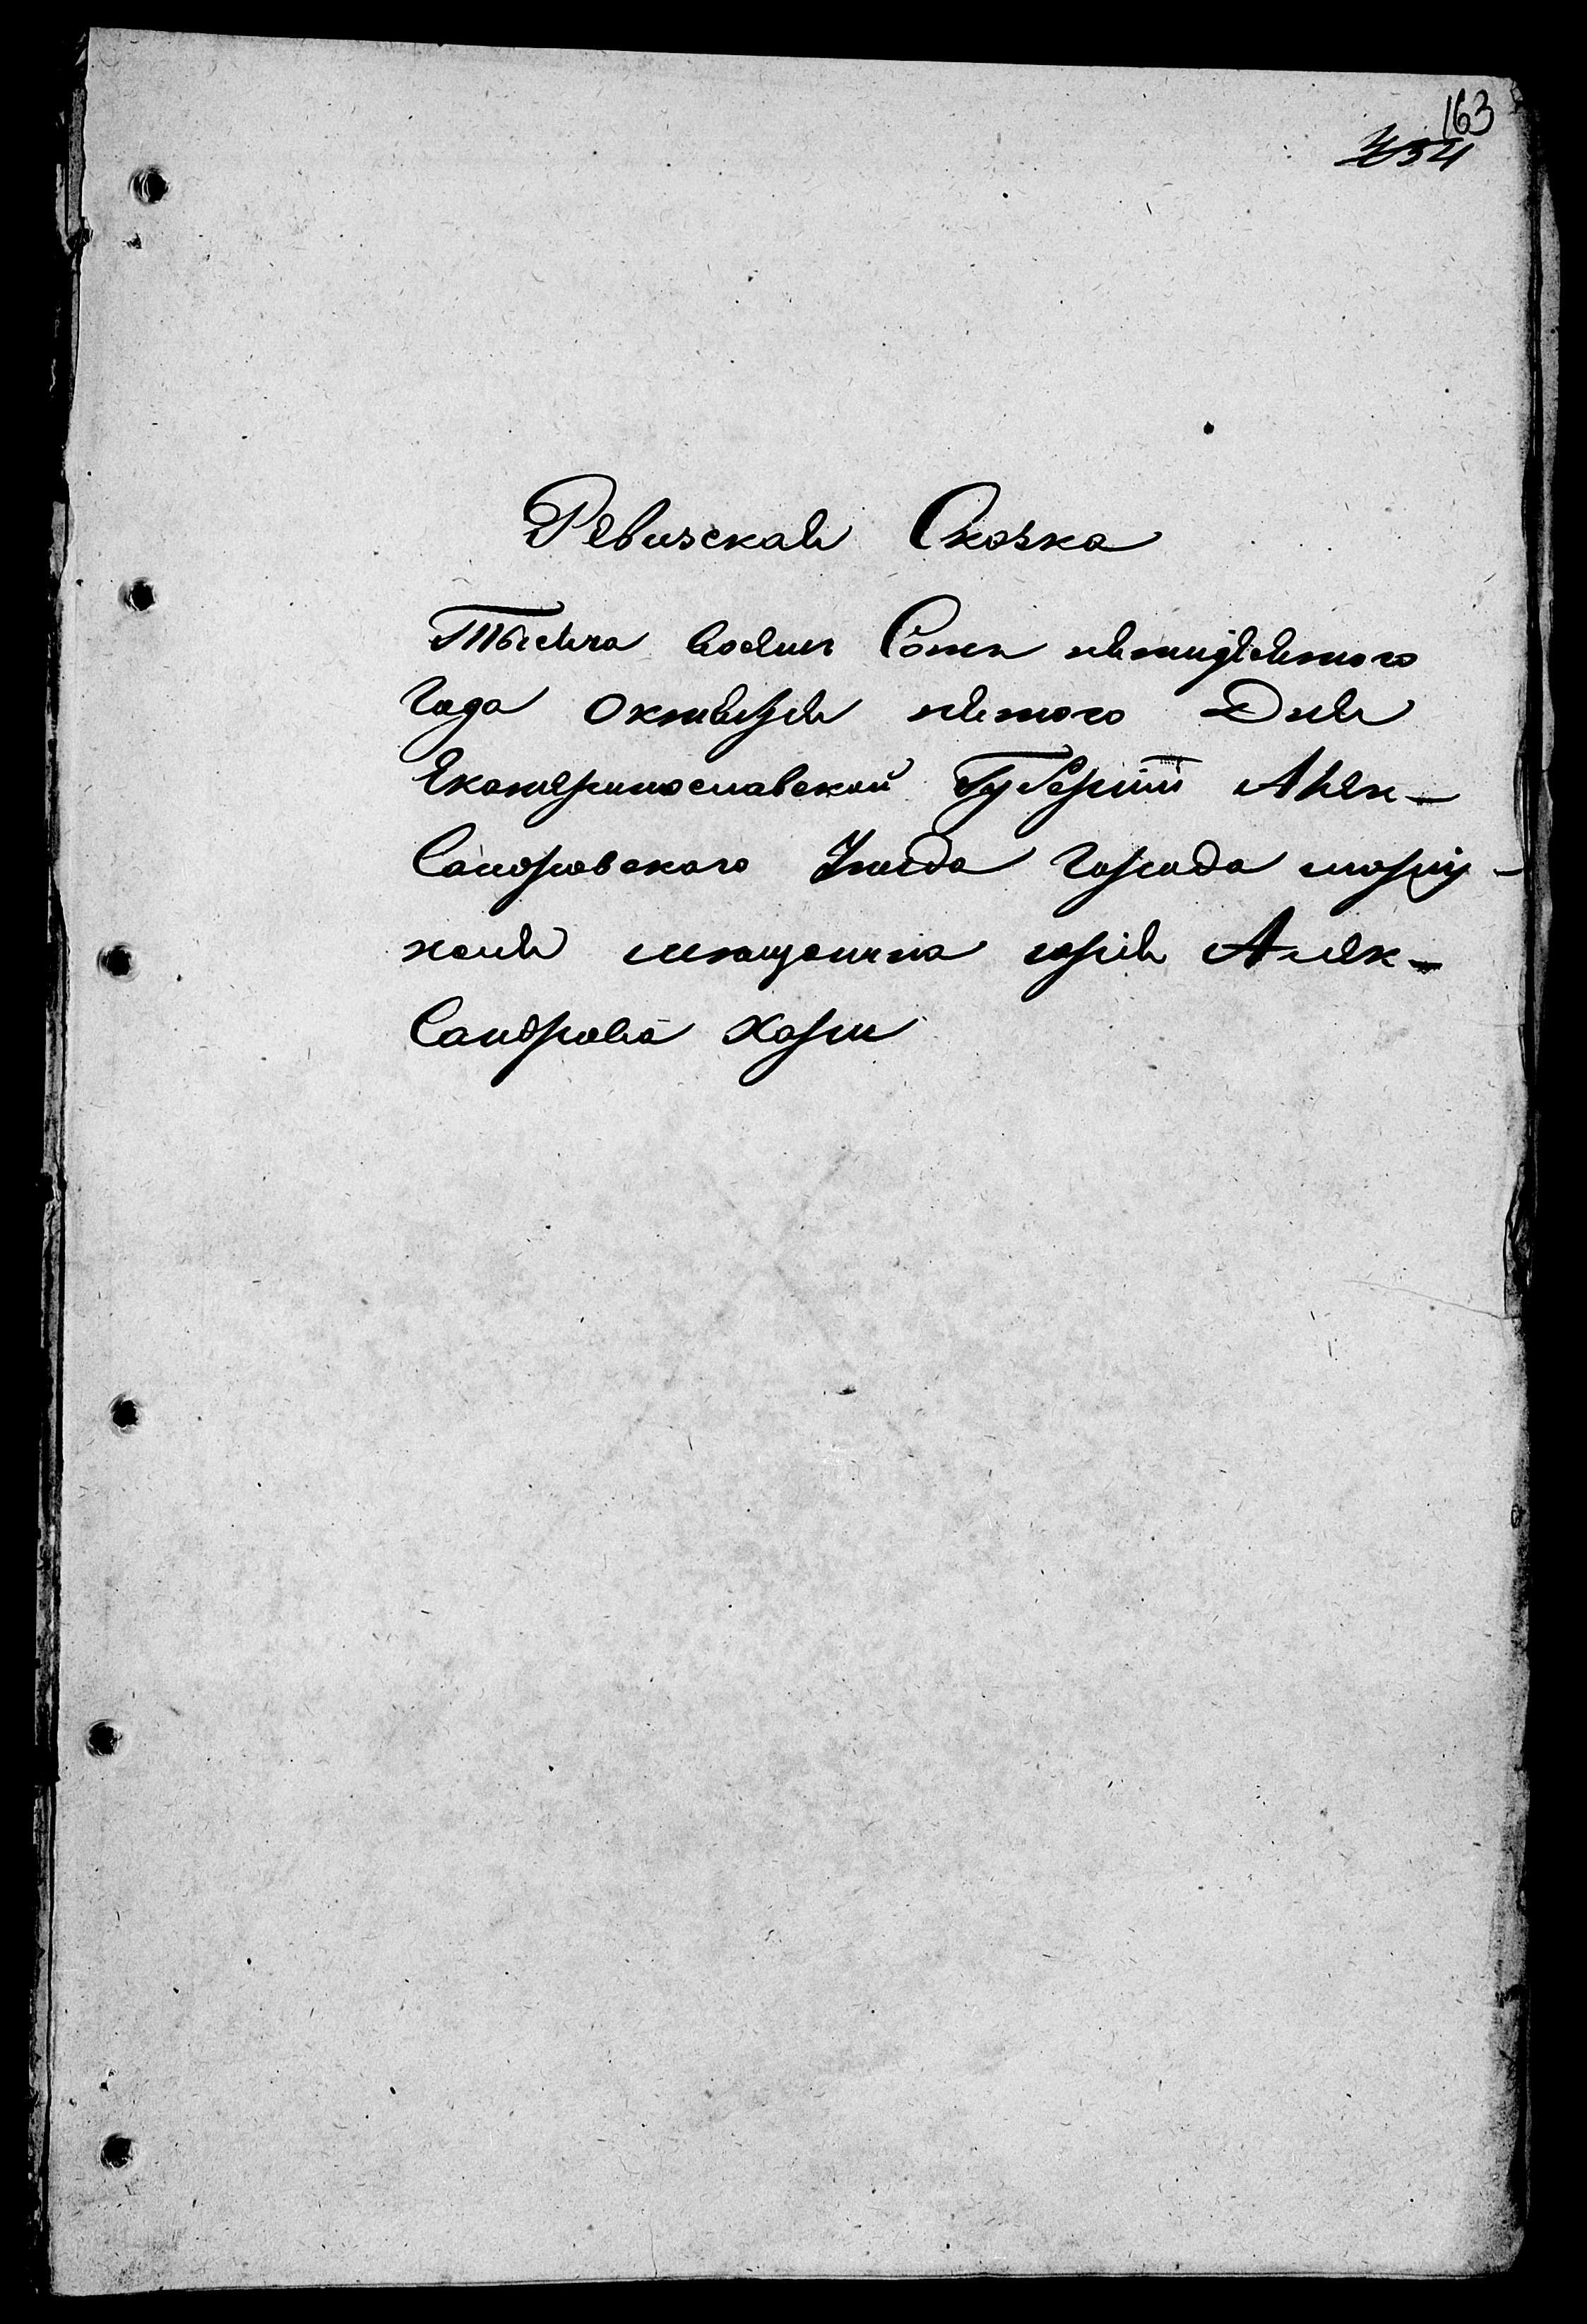 163
434
Ревизская Сказка
Тысяча восемь Сотъ пятидесятого
Года октября пятого Дня
Екатеринославской Губернии Алек-
Сандровского Уезда Города мариу-
поля мещанина юрия Алек-
Сандрова Хори